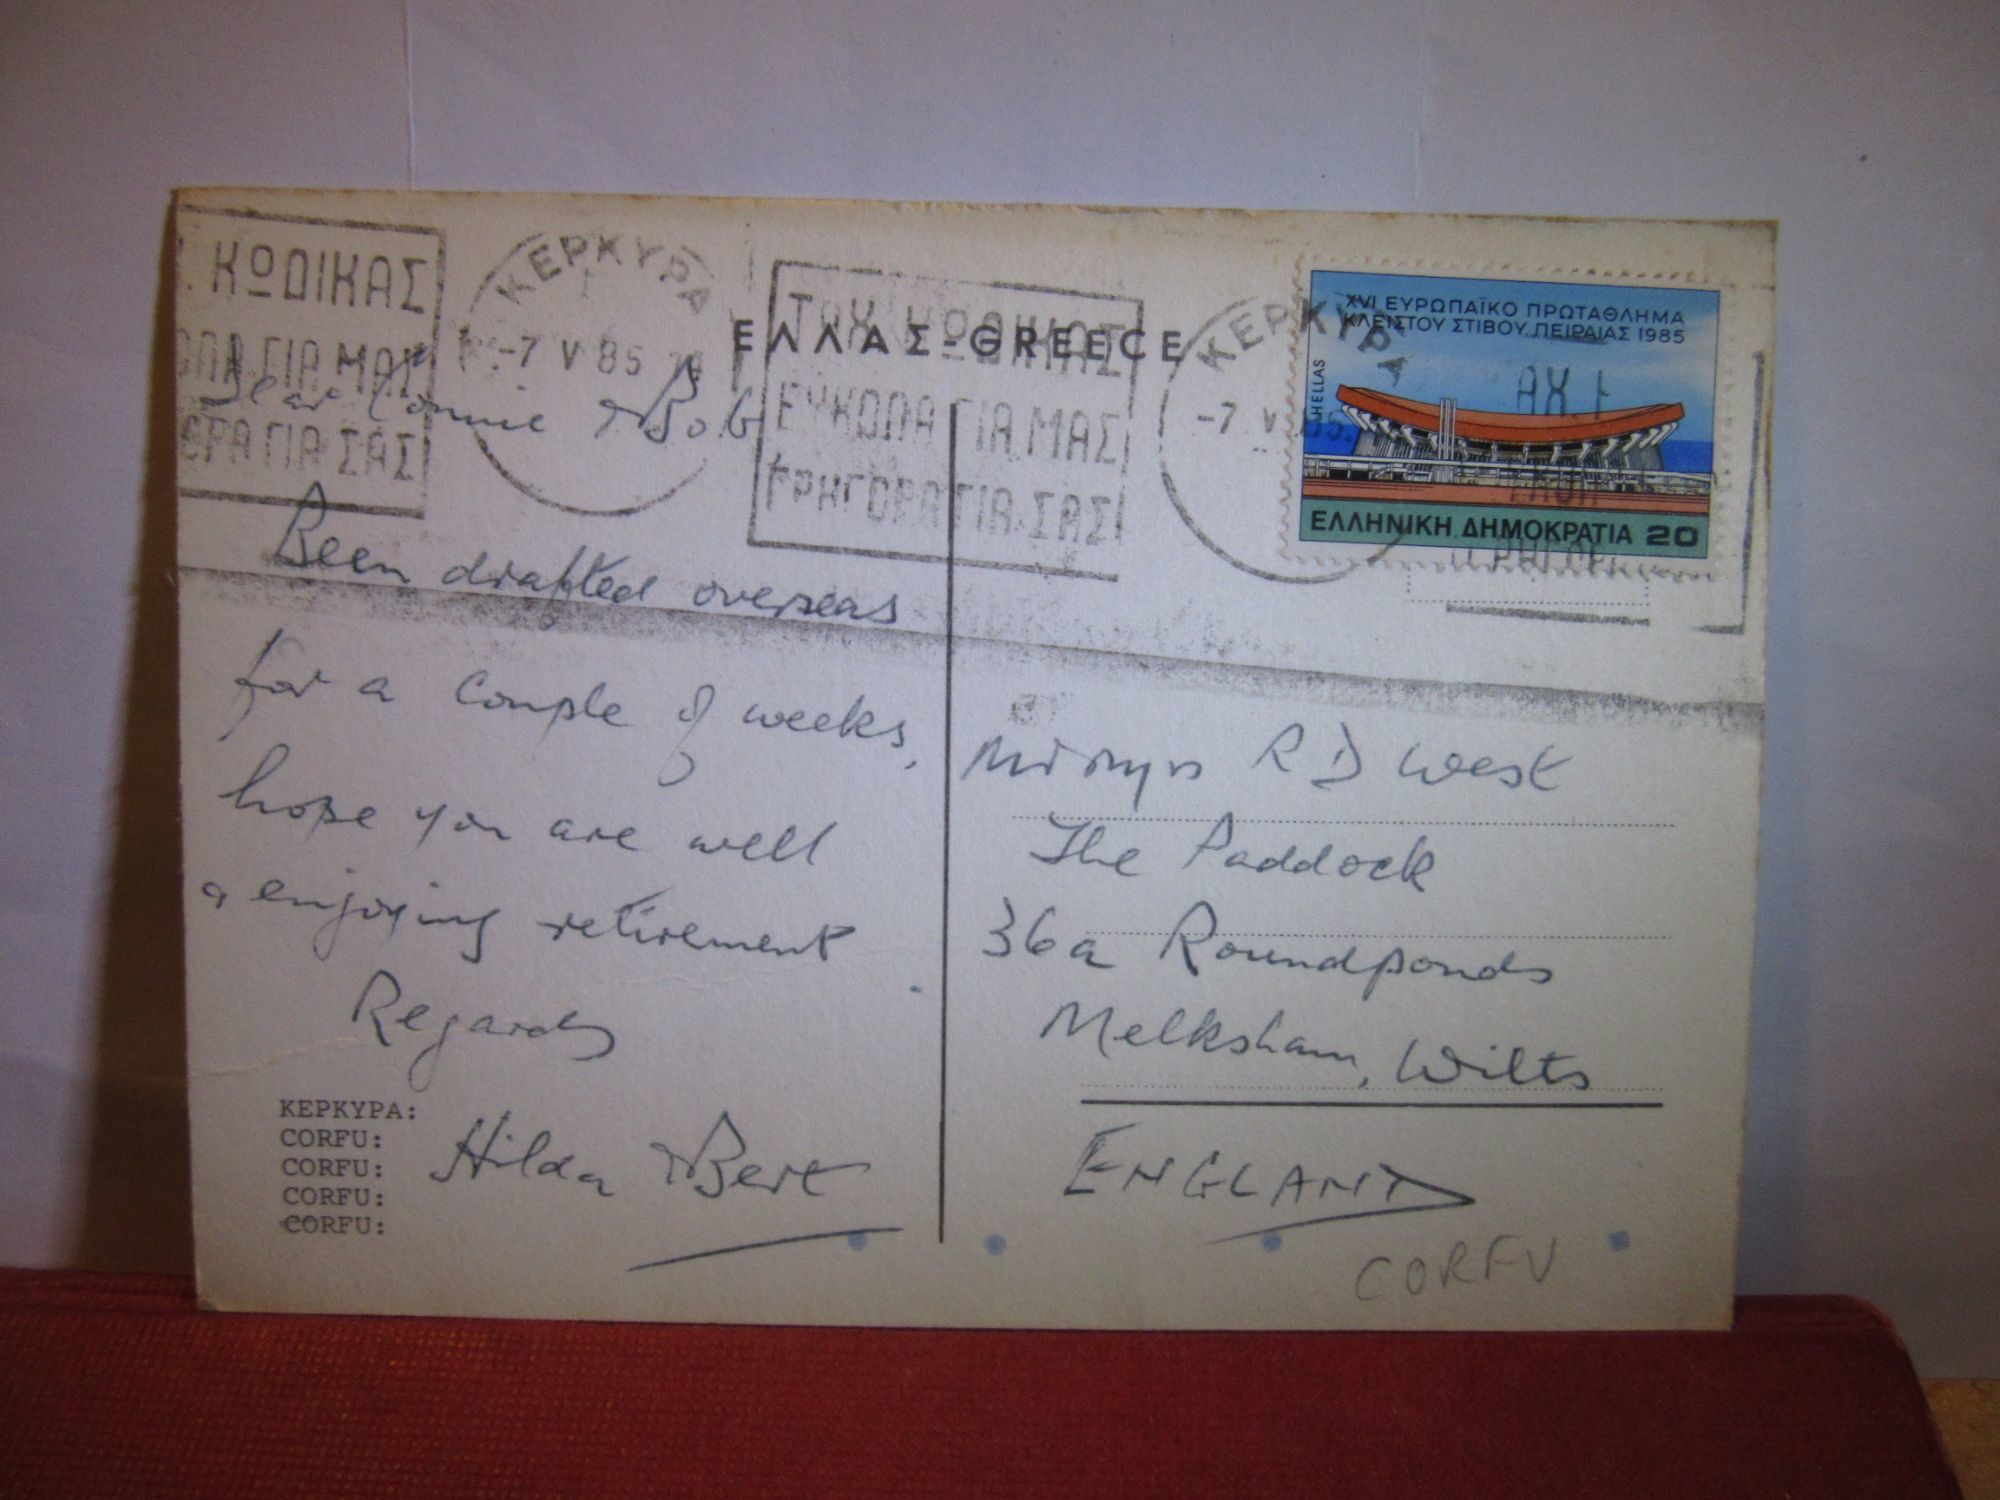 ΚΩΔΙΚΑΣ
ΓΙΑ ΜΑΣ
ΓΙΑ ΣΑΣ
ΚΕΡΚΥΡΑ
-7 V 85
ΕΛΛΑΣ-GREECE
ΤΑΧ. ΚΩΔΙΚΑΣ
ΕΥΚΟΛΑ ΓΙΑ ΜΑΣ
ΓΡΗΓΟΡΑ ΓΙΑ ΣΑΣ
ΚΕΡΚΥΡΑ
-7 V 85
XVI ΕΥΡΩΠΑΪΚΟ ΠΡΩΤΑΘΛΗΜΑ
ΚΛΕΙΣΤΟΥ ΣΤΙΒΟΥ, ΠΕΙΡΑΙΑΣ 1985
HELLAS
ΕΛΛΗΝΙΚΗ ΔΗΜΟΚΡΑΤΙΑ 20
Dear Connie & Bob
Been drafted overseas
for a couple of weeks,
hope you are well
& enjoying retirement
Regards
Hilda & Bert
R D West
The Paddock
36a Roundponds
Melksham, Wilts
ENGLAND
CORFU
ΚΕΡΚΥΡΑ:
CORFU:
CORFU:
CORFU:
CORFU: